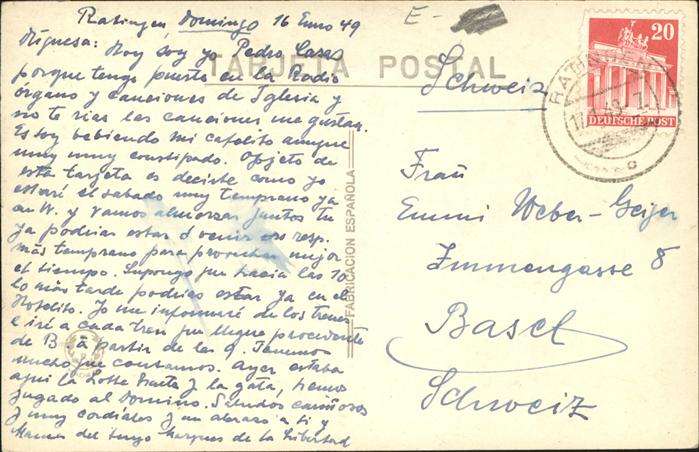 Ratingen Domingo 16 Enero 49
Miguesa: Hoy soy yo Pedro Casas
porque tengo puesto en la Radio
organo y canciones de Iglesia y
no te rias las canciones me gustan.
Estoy bebiendo mi cafelito aunque
muy muy constipado. Objeto de
esta tarjeta es decirte como yo
estaré el sabado muy temprano ya
en W. y vamos almorzar juntos tu
ya podrias estar o venir eso resp.
más temprano para provechar mejor
el tiempo. Supongo que hacia las 10
lo más tarde podrias estar ya en el
Hotelito. Yo me informaré de los trenes
e iré a cada tren que llegue procedente
de B a partir de las 9. Tenemos
mucho que contarnos. Ayer estaba
aqui la Lotte y la gata, hemos
jugado al Domino. Saludos cariñosos
y muy cordiales y un abrazo a ti y
Mama del Marques de la Libertad
TARJETA POSTAL
FABRICACION ESPAÑOLA
E-
Schweiz
20
DEUTSCHE POST
Frau
Emmi Weber-Geiger
Immengasse 8
Basel
Schweiz